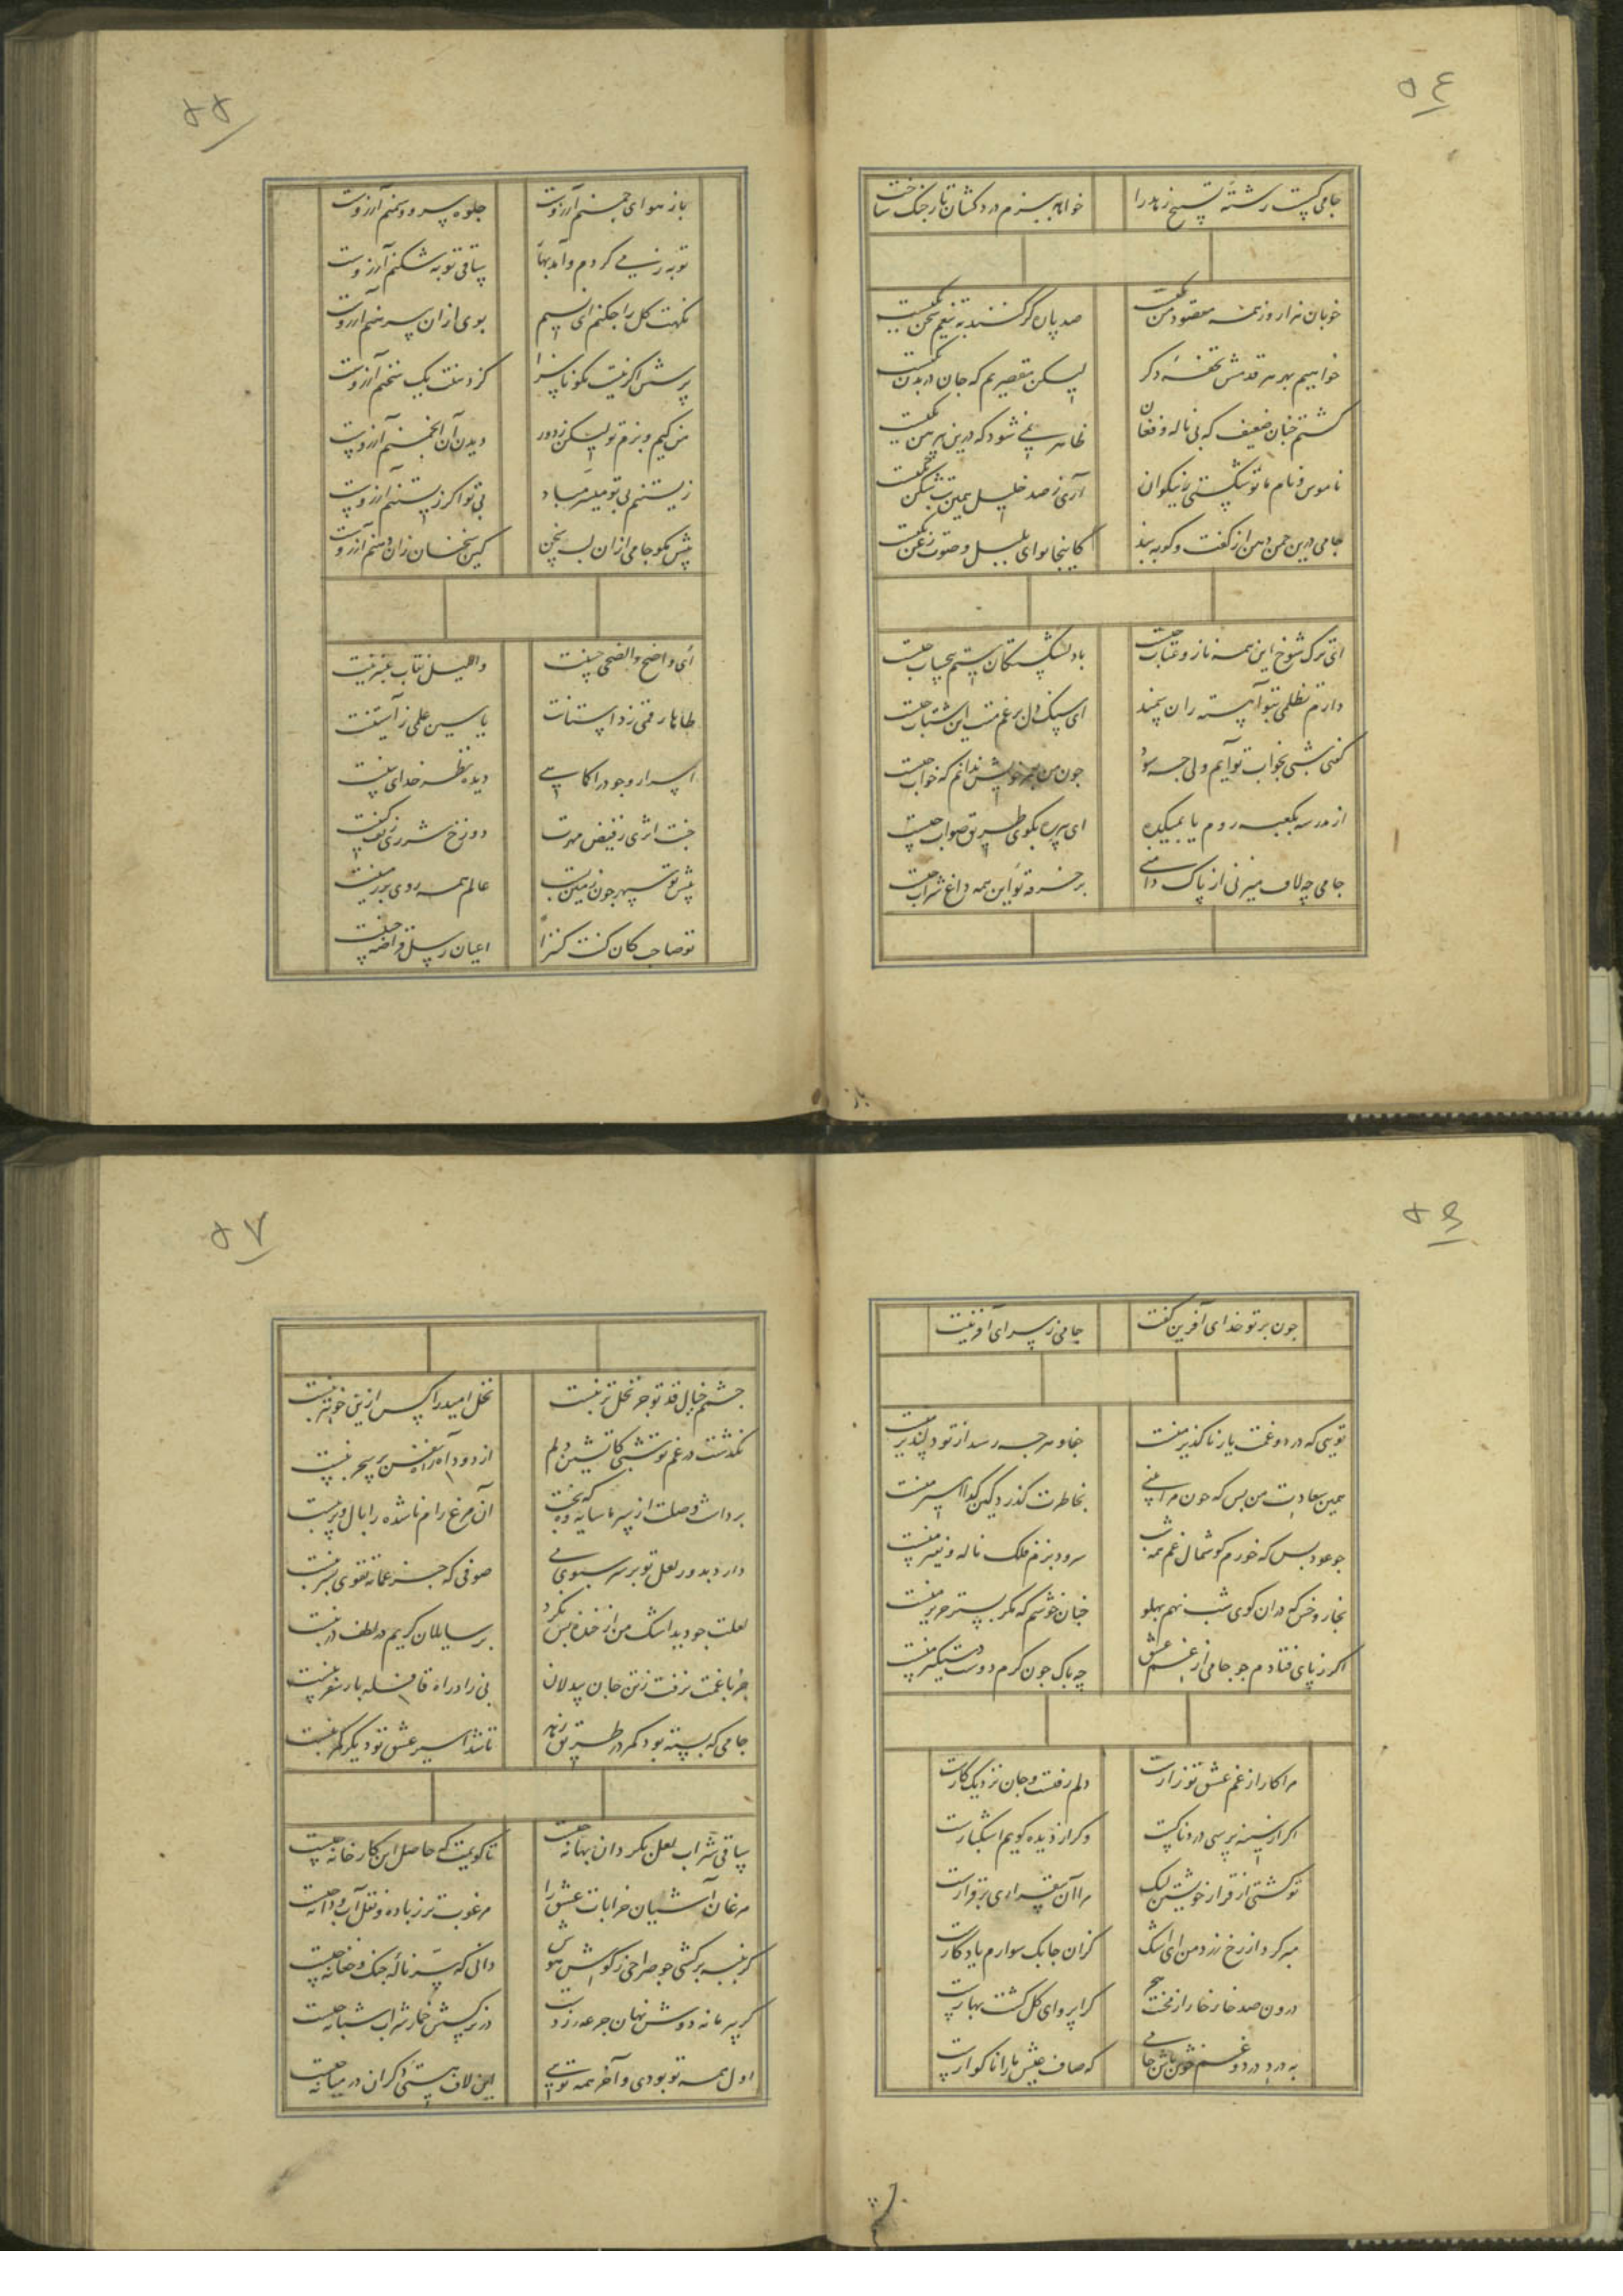 ٥٤
جامی گسست رشتهٔ تسبیح زهد را
خواهد ببزم دردکشان تار چنگ ساخت
خوبان هزار و از همه مقصود من یکیست
صد پاره گر کنند به تیغم سخن یکیست
خواهیم بهر هر قدمش تحفهٔ دگر
لیکن مقصریم که جان در بدن یکیست
گشتم چنان ضعیف که بی ناله و فغان
ظاهر نمی شود که درین پیرهن یکیست
ناموس و نام ما تو شکستی ز نیکوان
آری ز صد خلیل همین بت شکن یکیست
جامی درین چمن دهن از گفت و گو ببند
کاینجا نوای بلبل و صوت زغن یکیست
ای ترک شوخ این همه ناز و عتاب چیست
با دلشکستگان ستم بی حساب چیست
دارم تظلمی بتو آهسته ران سمند
ای سنگ دل برغم منت این شتاب چیست
گفتی شبی بخواب تو آیم ولی چه سود
چون من بعمر خویش ندانم که خواب چیست
از مدرسه بکعبه روم یا بمیکده
ای پیر ره بگوی طریق صواب چیست
جامی چه لاف میزنی از پاک دامنی
بر خرقه تو این همه داغ شراب چیست
باز
٥٥
باز هوای چمنم آرزوست
جلوه سرو و سمنم آرزوست
توبه ز می کردم و آمد بهار
ساقی توبه شکنم آرزوست
نکهت گل را چکنم ای نسیم
بوی ازان پیرهنم آرزوست
پرسش اگر نیست بگو ناسزا
کز دهنت یک سخنم آرزوست
من کیم و بزم تو لیکن ز دور
دیدن آن انجمنم آرزوست
زیستنم بی تو میسر مباد
بی تو اگر زیستنم آرزوست
پیش مگو جامی ازان لب سخن
کین سخنان زان دهنم آرزوست
ای واضح والضحی جبینت
واللیل نقاب عنبرینت
طاها رقمی ز داستانت
یاسین علمی ز آستینت
اسرار وجود را کماهی
دیده نظر خدای بینت
جنت اثری ز فیض مهرت
دوزخ شرری ز تف کینت
پیش تو سپهر چون زمین پست
عالم همه روی بر زمینت
تو صاحب کان کنت کنزاً
اعیان رسل قراضه چینت
٥٦
چون بر تو خدای آفرین گفت
جامی ز سرای آفرینت
تویی که درد و غمت یار ناگزیر منست
جفا و هر چه رسد از تو دلپذیر منست
همین سعادت من بس که چون مرا بینی
بخاطرت گذرد کین گدا اسیر منست
چو عود بس که خورم گوشمال غم همه شب
سرود بزم فلک ناله و نفیر منست
بخار و خس که دران کوی شب نهم پهلو
چنان خوشم که مگر بستر حریر منست
اگر ز پای فتادم چو جامی از غم عشق
چه باک چون کرم دوست دستگیر منست
مرا کار از غم عشق تو زارست
دلم رفت و جان نزدیک کارست
اگر از سینه پرسی دردناکست
و گر از دیده گویم اشکبارست
تو گشتی از قرار خویشتن لیک
مرا آن بیقراری برقرارست
مبر گرد از رخ زرد من ای اشک
کزان چابک سوارم یادگارست
درون صد خار خار از محنت هجر
کرا پروای گل گشت بهارست
به درد درد و غم خوش باش جامی
که صاف عیش یارانا گوارست
٥٧
چشم خیال قد تو جز نخل تر نبست
نخل امید را کس ازین خوبتر نبست
نگذشت در غم تو شبی کاتشین دلم
از دود آه راه نفس بر سحر نبست
برداشت وصلت از سر ما سایه وه که بخت
آن مرغ رام ناشده را بال و پر نبست
دارد بدور لعل تو بر سر سبوی می
صوفی که جز عمامه تقوی بسر نبست
لعلت چو دید اشک من از خنده بس نکرد
بر سایلان کریم در لطف در نبست
جز با غمت نرفت ز تن جان بیدلان
بی زاد راه قافله بار سفر نبست
جامی که بسته بود کمر در طریق زهد
تا شد اسیر عشق تو دیگر کمر نبست
ساقی شراب لعل بگردان بهانه چیست
تا گویمت که حاصل این کارخانه چیست
مرغان آشیان خرابات عشق را
مرغوب تر ز باده و نقل آب و دانه چیست
گر پنبه برکشی چو صراحی ز گوش هوش
دانی که سر نالهٔ چنگ و چغانه چیست
گر بی ما نه دوش نهان جرعه زدت
در نرگسش خمار شراب شبانه چیست
اول همه تو بودی و آخر همه تویی
این لاف هستی دگران در میانه چیست